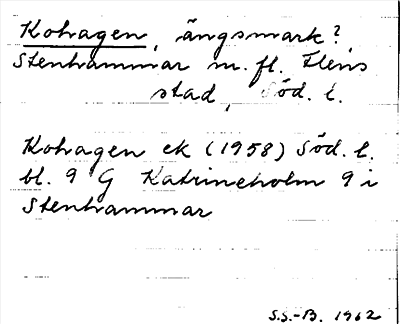 Kohagen, ängsmark?
Stenhammar m. fl. Flens
stad, Söd. l.
Kohagen ek (1958) Söd. l.
bl. 9 G Katrineholm 9 i
Stenhammar
S.S.-B. 1962